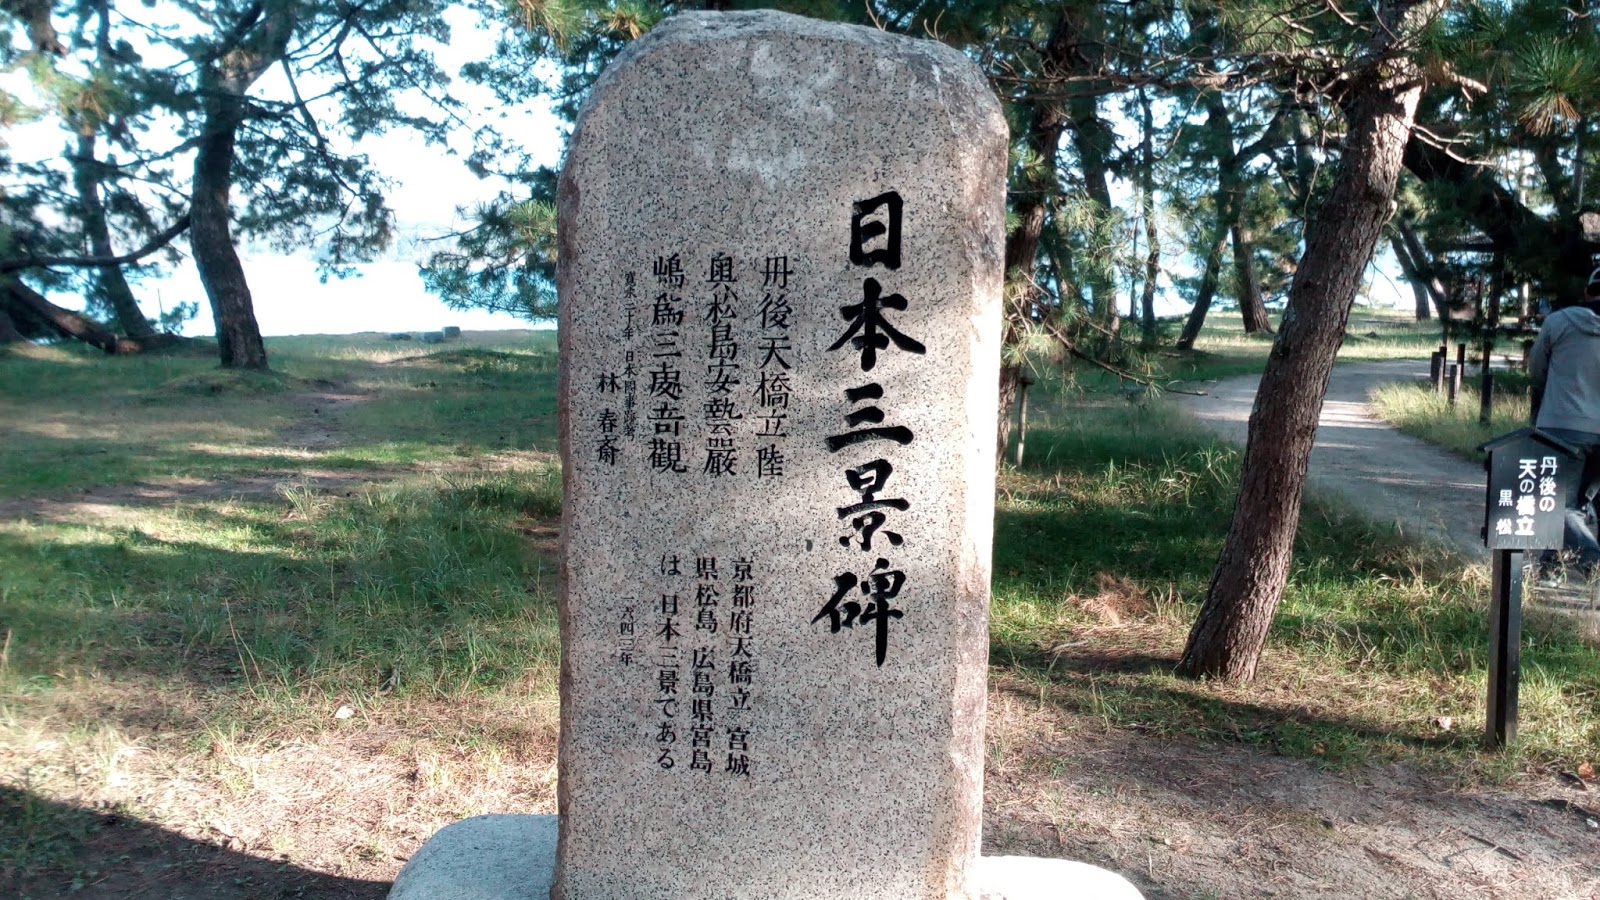 日本三景碑
丹後天橋立陸
奥松島安藝嚴
嶋爲三處奇觀
寛永二十年 日本国事跡考
林 春斎
京都府天橋立 宮城
県松島 広島県宮島
は 日本三景である
一六四三年
丹後の
天の橋立
黒松